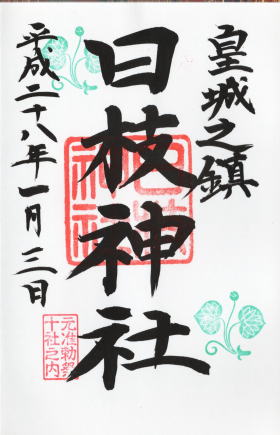 皇城之鎮
日枝神社
平成二十八年一月三日
元准勅祭
十社之内